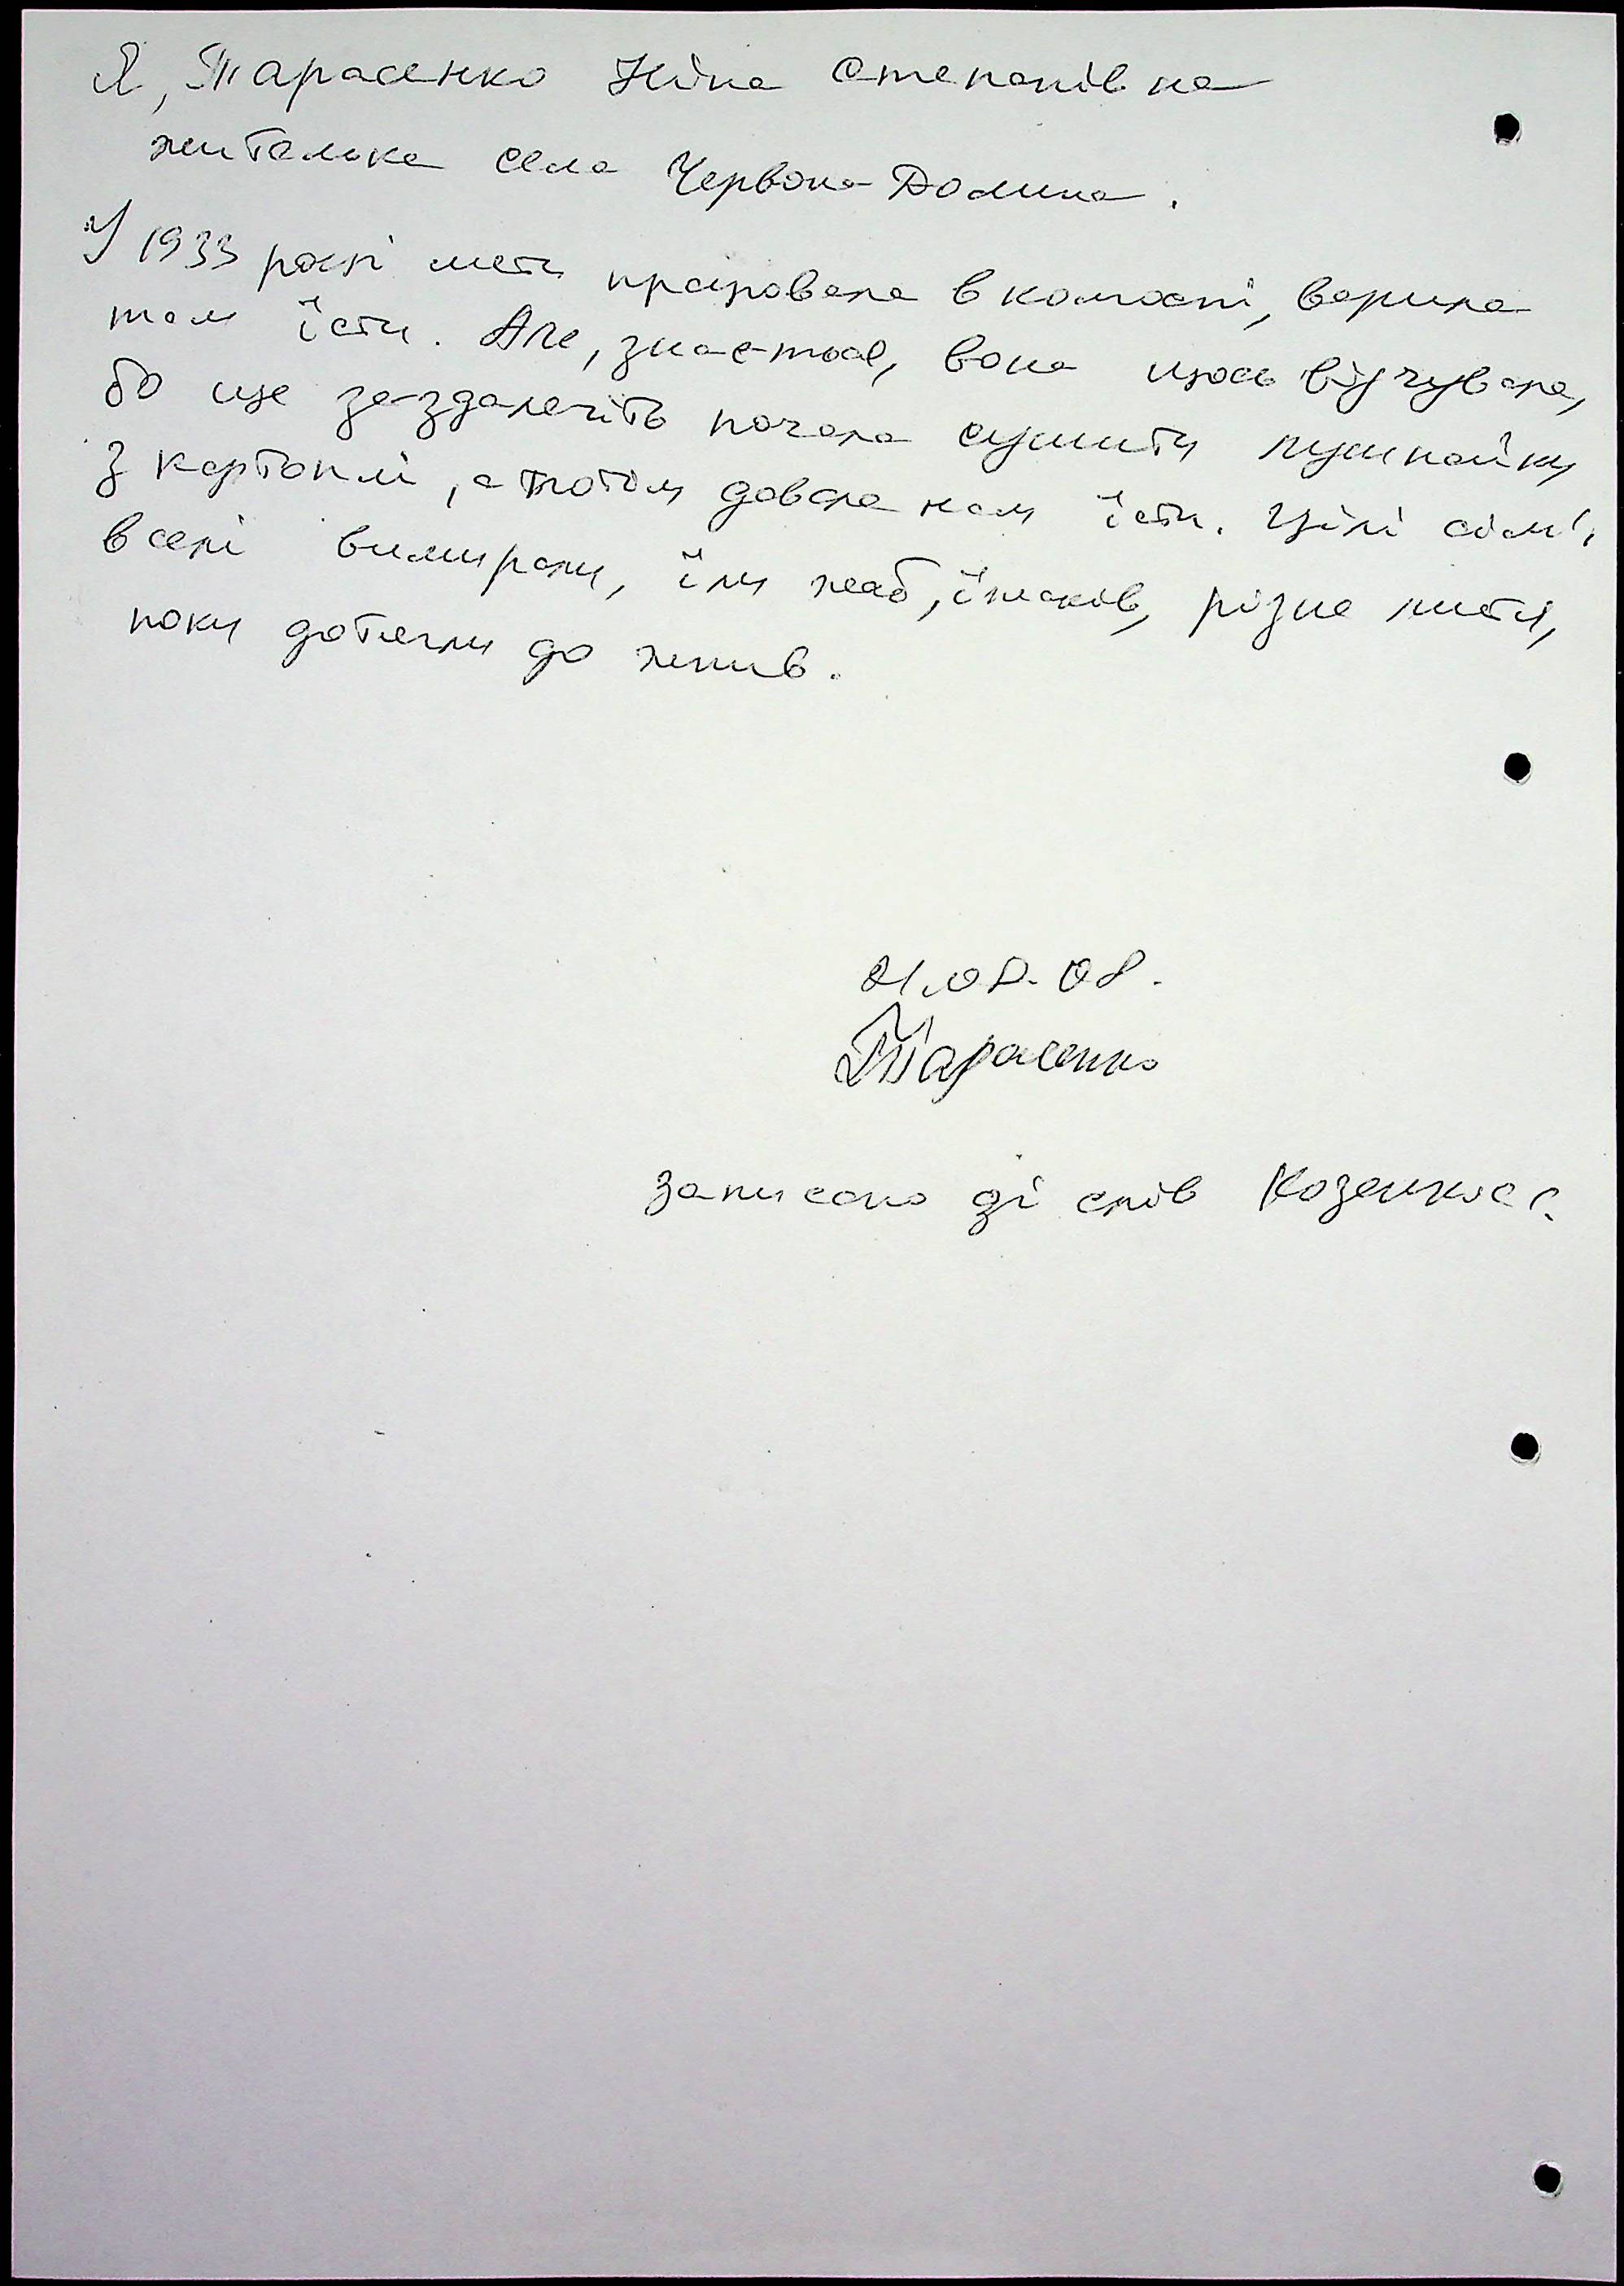 Я, Тарасенко Ніна Степанівна
жителька села Червона Долина.
У 1933 році мати працювала в колгоспі, варила
там їсти. Але, знається, вона щось відчувала,
бо ще заздалегіть почала сушити лушпайки
з картоплі, а потім давала нам їсти. Цілі сім'ї
в селі вимирали, їли жаб, їжаків, різне листя,
поки дотягли до жнив.
08.
Тарасенко
Записано зі слів